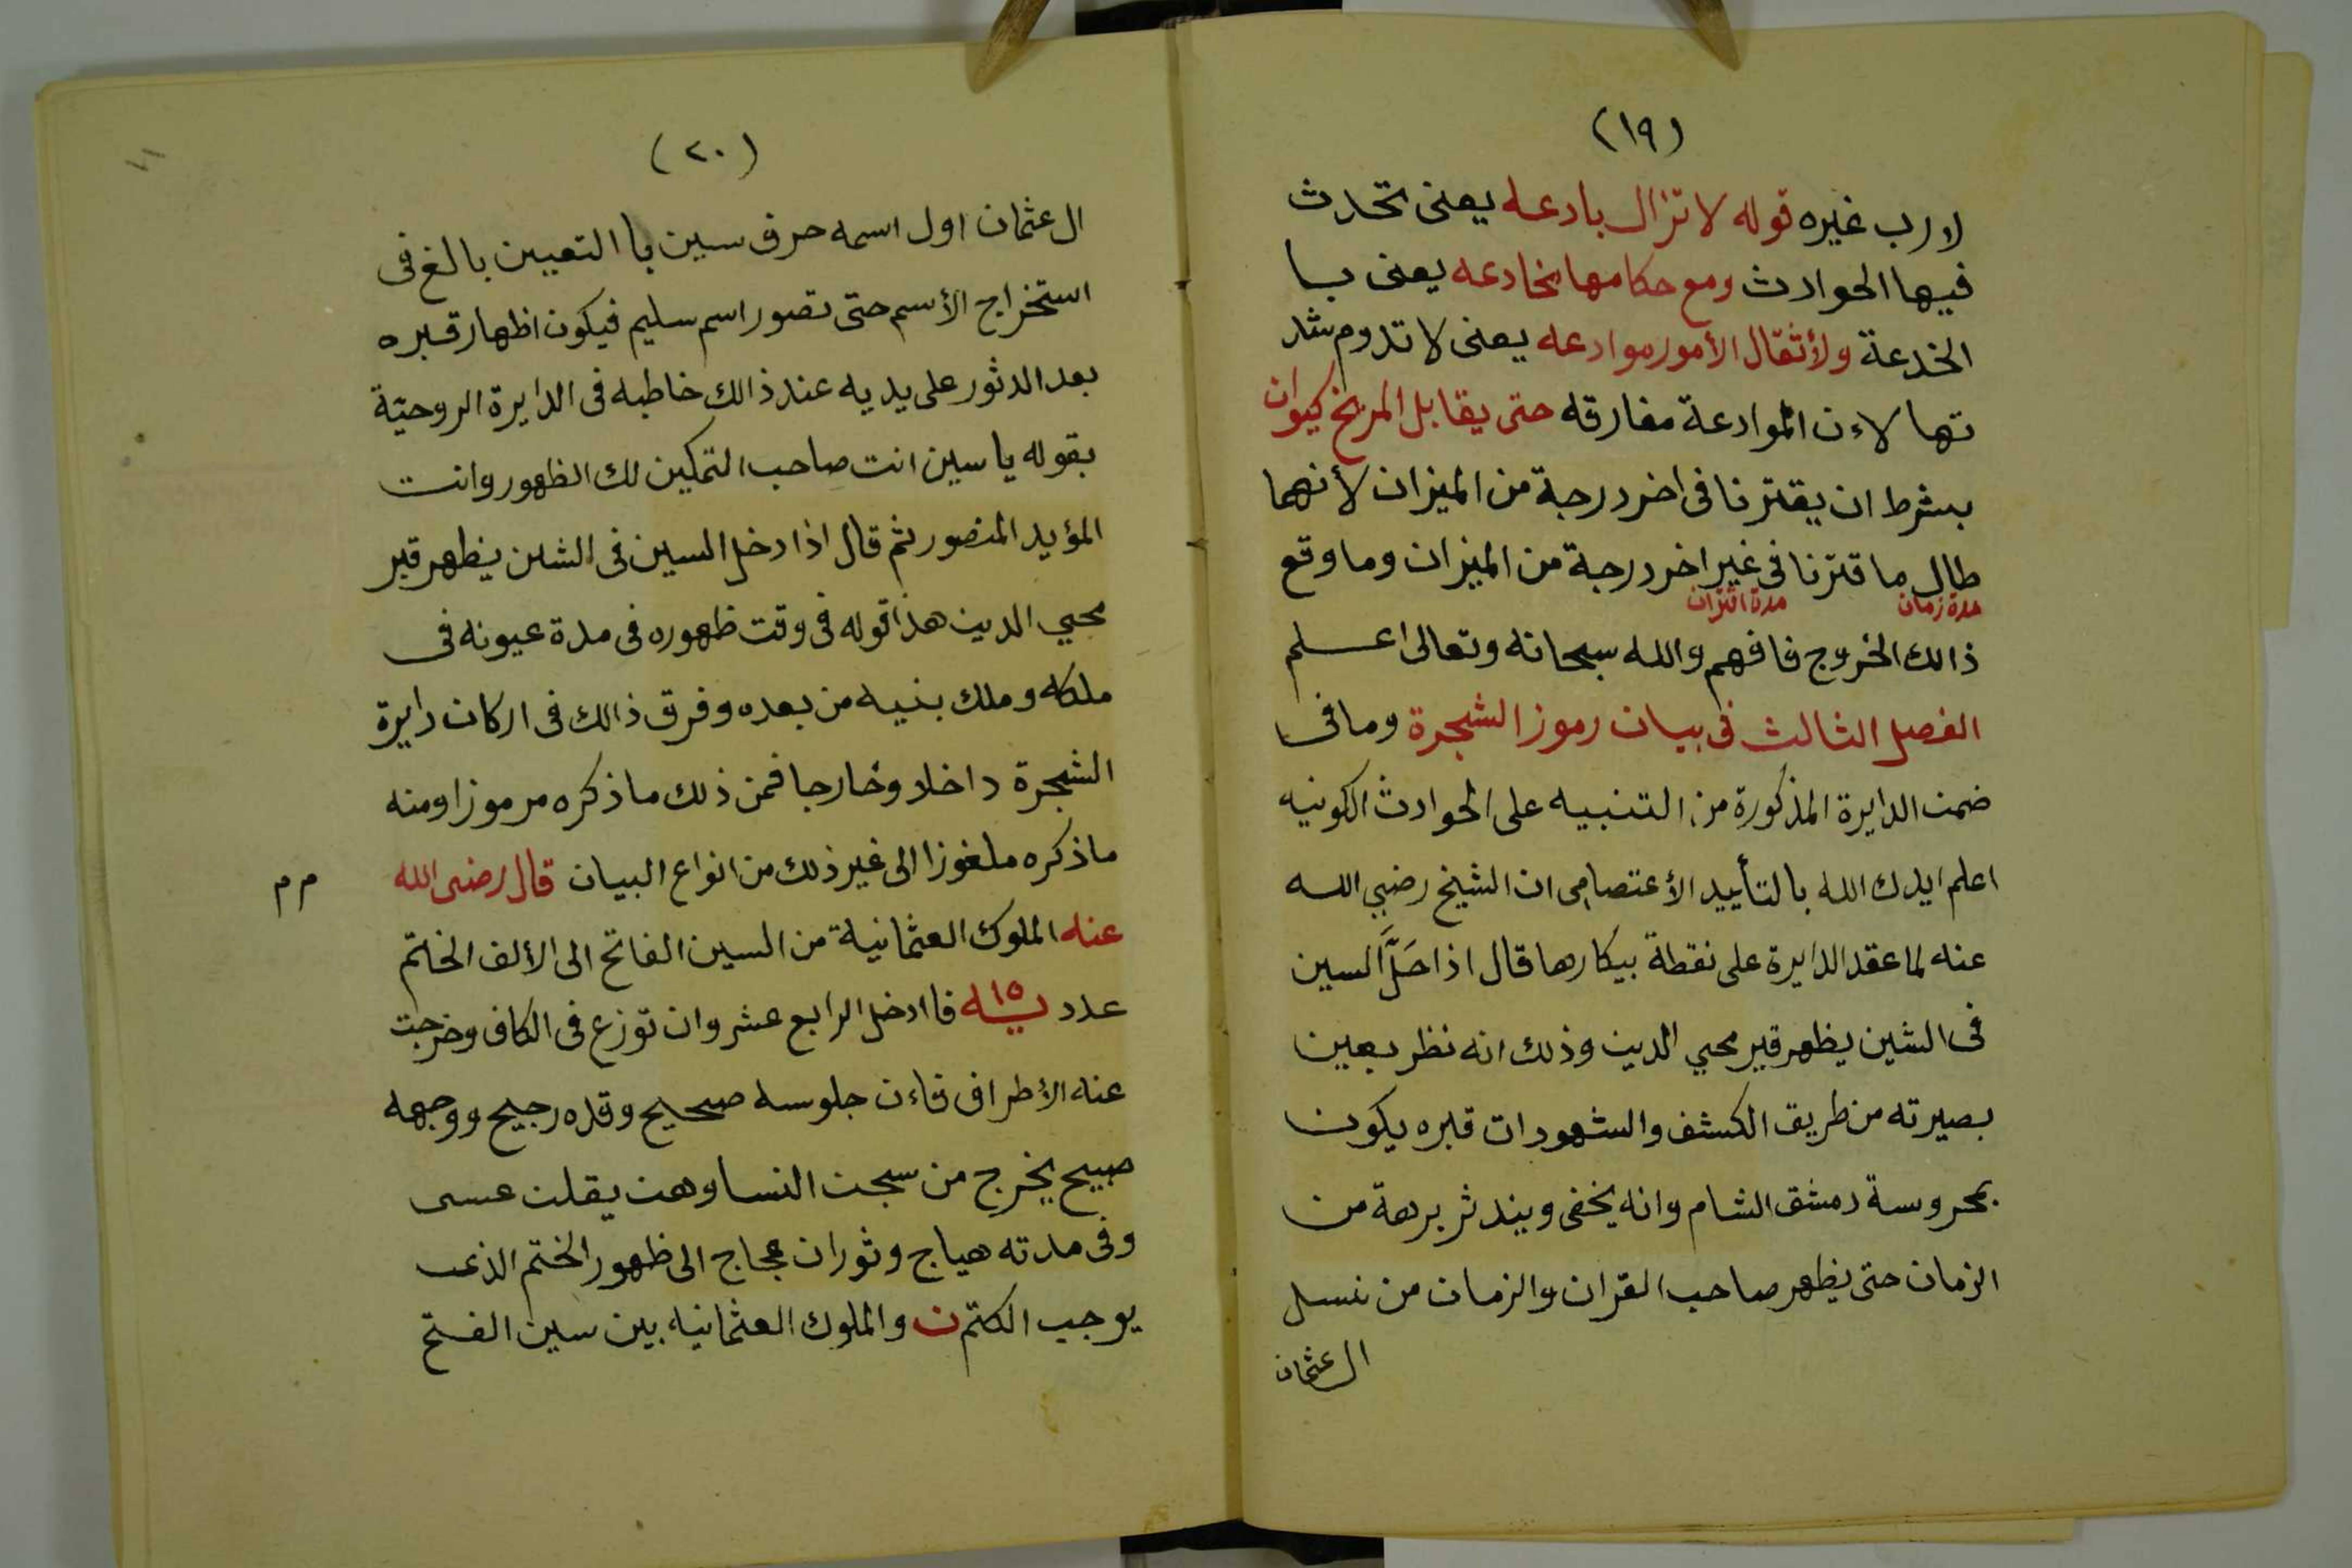 (١٩)
لا رب غيره قوله لا تزال بادعه يعنى تحدث
فيها الحوادث ومع حكامها مخادعه يعنى بـا
الخدعة ولأثقال الأمور موادعه يعنى لا تدوم شد
تها لاءن الموادعة مفارقه حتى يقابل المريخ كيوان
بشرط ان يقترنا فى اخر درجة من الميزان لأنهما
طال ما قترنا فى غير اخر درجة من الميزان وما وقع
مدة زمان مدة اقتران
ذالك الخروج فافهم والله سبحانه وتعالى اعلم
الفصل الثالث فى بيان رموز الشجرة وما فى
ضمن الدايرة المذكورة من التنبيه على الحوادث الكونيه
اعلم ايدك الله بالتأييد الأعتصامى ان الشيخ رضى الله
عنه لما عقد الدايرة على نقطة بيكارها قال اذا حَلَّ السين
فى الشين يظهر قبر محيي الدين وذلك انه نظر بعين
بصيرته من طريق الكشف والشهود ان قبره يكون
بمحروسة دمشق الشام وانه يخفى ويندثر برهة من
الزمان حتى يظهر صاحب القران والزمان من نسل
ال عثمان
(٢٠)
ال عثمان اول اسمه حرف سين با التعيين بالغ فى
استخراج الأسم حتى تصور اسم سليم فيكون اظهار قبره
بعد الدثور على يديه عند ذالك خاطبه فى الدايرة الروحيّة
بقوله يا سين انت صاحب التمكين لك الظهور وانت
المؤيد المنصور ثم قال اذا دخل السين فى الشين يظهر قبر
محيي الدين هذا قوله فى وقت ظهوره فى مدة عيونه فى
ملكه وملك بنيه من بعده وفرق ذالك فى اركان دايرة
الشجرة داخلا وخارجا فمن ذلك ما ذكره مرموزا ومنه
ما ذكره ملغوزا الى غير ذلك من انواع البيان قال رضى الله
م م
عنه الملوك العثمانية من السين الفاتح الى الألف الختم
عدد ١٥ فا ادخل الرابع عشر وان توزع فى الكاف وخرجت
عنه الأطراف فاءن جلوسه صحيح وقده رجيح ووجهه
صبيح يخرج من سجن النسا وهن يقلن عسى
وفى مدته هياج وثوران عجاج الى ظهور الختم الذى
يوجب الكتم ن والملوك العثمانيه بين سين الفتح